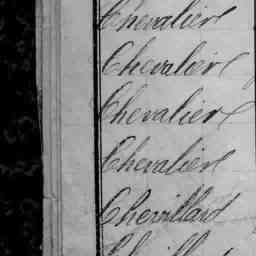 Chevalier
Chevalier
Chevalier
Chevalier
Chevillard